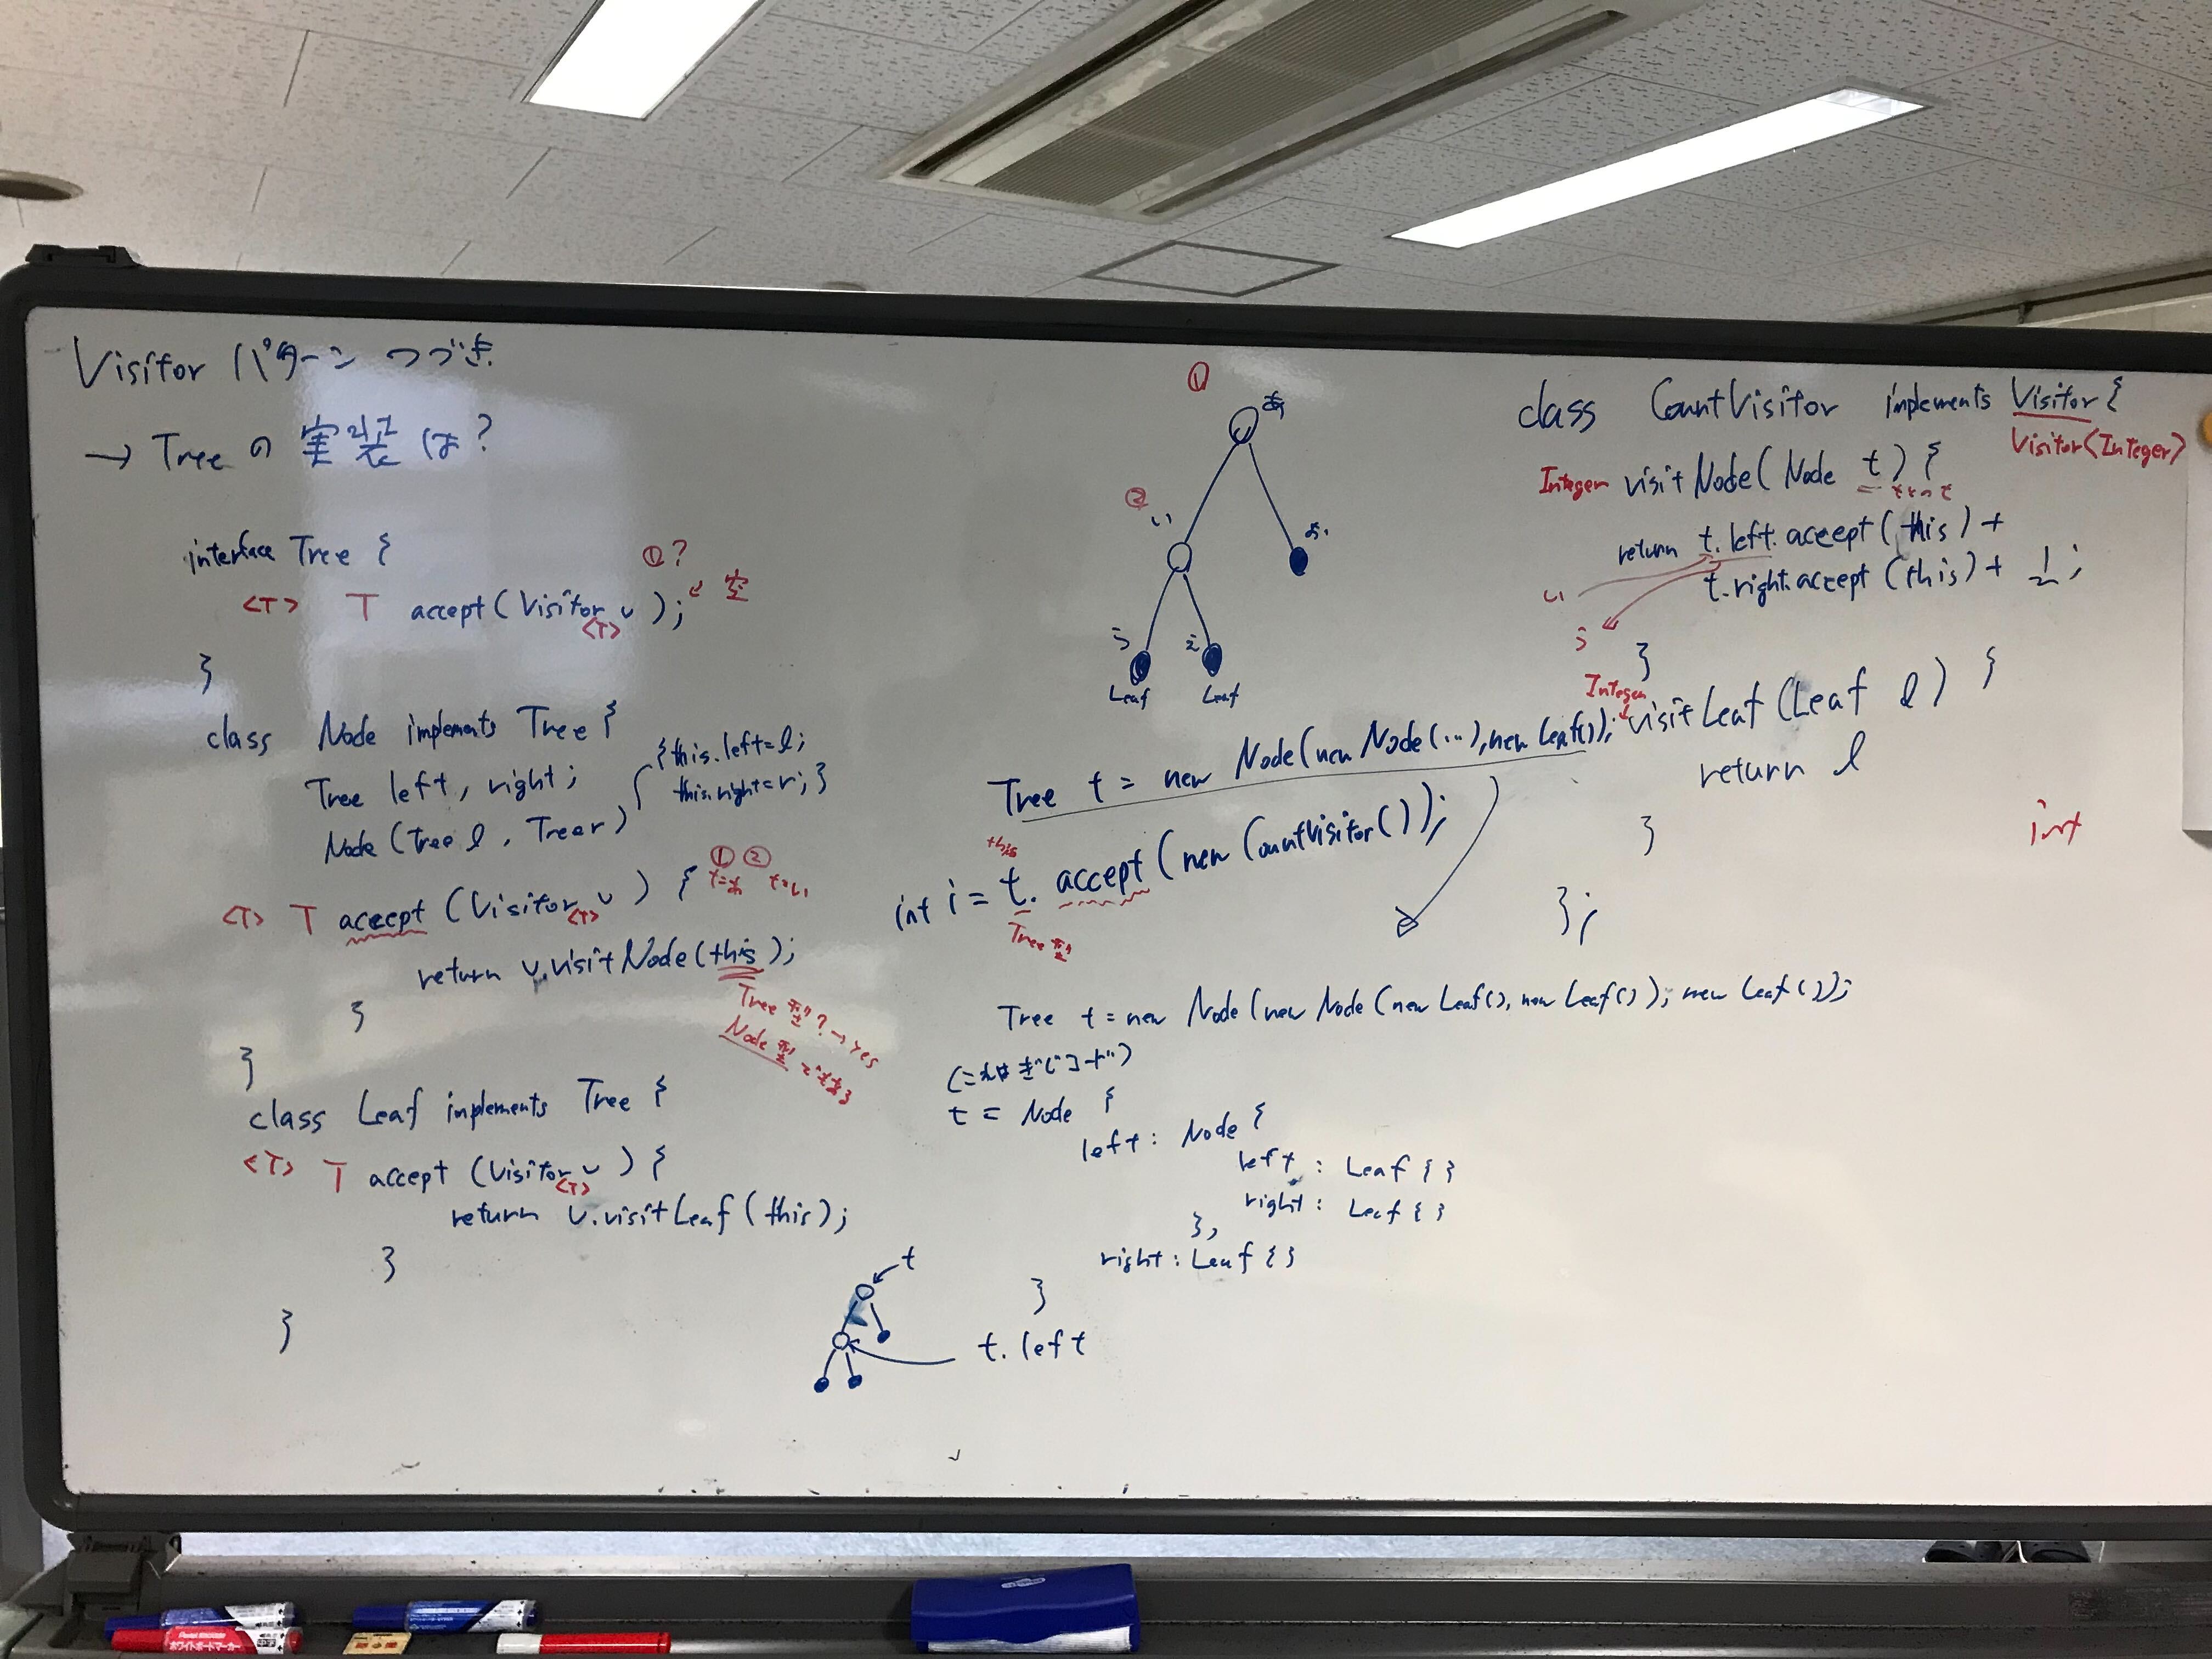 Visitor パターン つづき
→ Tree の 実装 は?
interface Tree {
①?
<T> T accept(Visitor<T> v); ← 空
}
class Node implements Tree {
Tree left, right;
Node (Tree l, Tree r) {this.left=l;
this.right=r;}
① ②
t=あ t=い
<T> T accept (Visitor<T> v) {
return v.visitNode(this);
Tree型?→Yes
Node型でもある
}
}
class Leaf implements Tree {
<T> T accept (Visitor<T> v) {
return v.visitLeaf(this);
}
}
①
あ
②
い
お
う え
Leaf Leaf
Tree t = new Node(new Node(...), new Leaf());
this
int i = t.accept(new CountVisitor());
Tree型
Tree t = new Node(new Node(new Leaf(), new Leaf()); new Leaf());
(これはぎじコード)
t = Node {
left: Node {
left: Leaf {}
right: Leaf {}
},
right: Leaf {}
}
t
t.left
class CountVisitor implements Visitor {
Visitor<Integer>
Integer visitNode(Node t) {
return t.left.accept(this) +
t.right.accept(this) + 1;
い
う
}
Integer
visitLeaf(Leaf l) {
return 1
}
int
};
Pentel
ホワイトボードマーカー